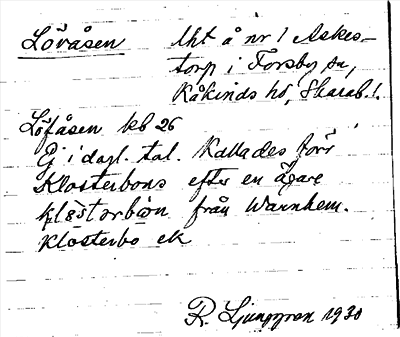 Lövåsen
Uht å nr 1 Askes-
torp i Forsby sn,
Kåkinds hd, Skarab. l.
Löfåsen kb 26
Ej i dagl. tal. Kallades förr
Klosterbons efter en ägare
klåstorbon från Warnhem.
Klosterbo ek
R. Ljunggren 1930